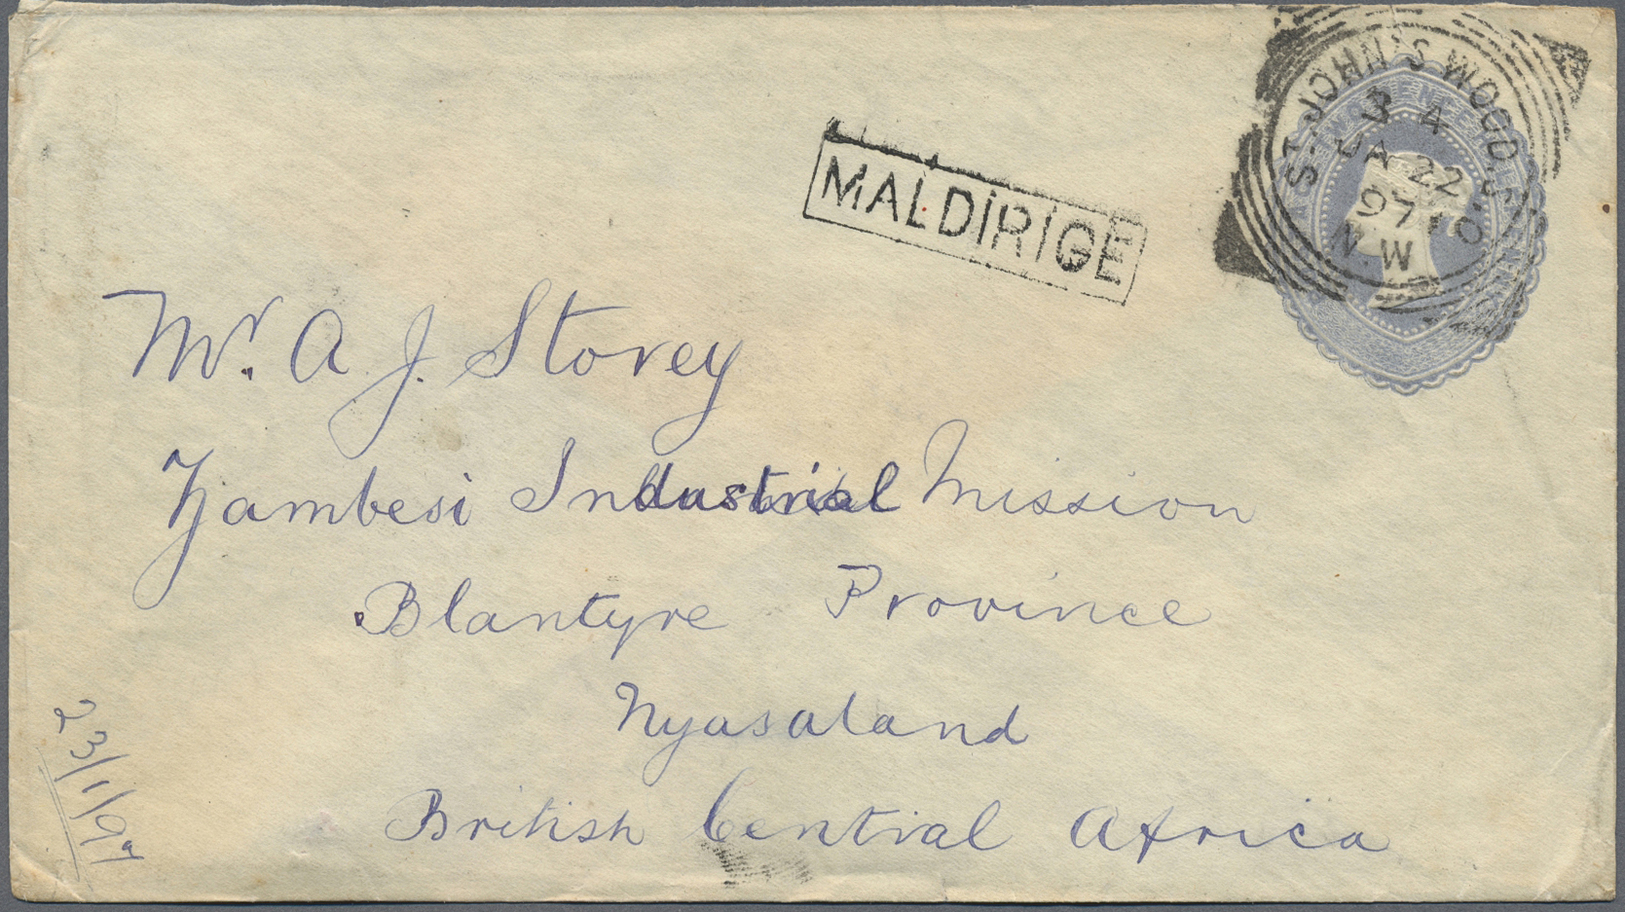 ST. JOHN'S WOOD. S.O.
3 4
JA 22
97
N.W
MALDIRIGE
Mr. A J. Storey
Zambesi Industrial Mission
Blantyre Province
Nyasaland
British Central Africa
23/1/97